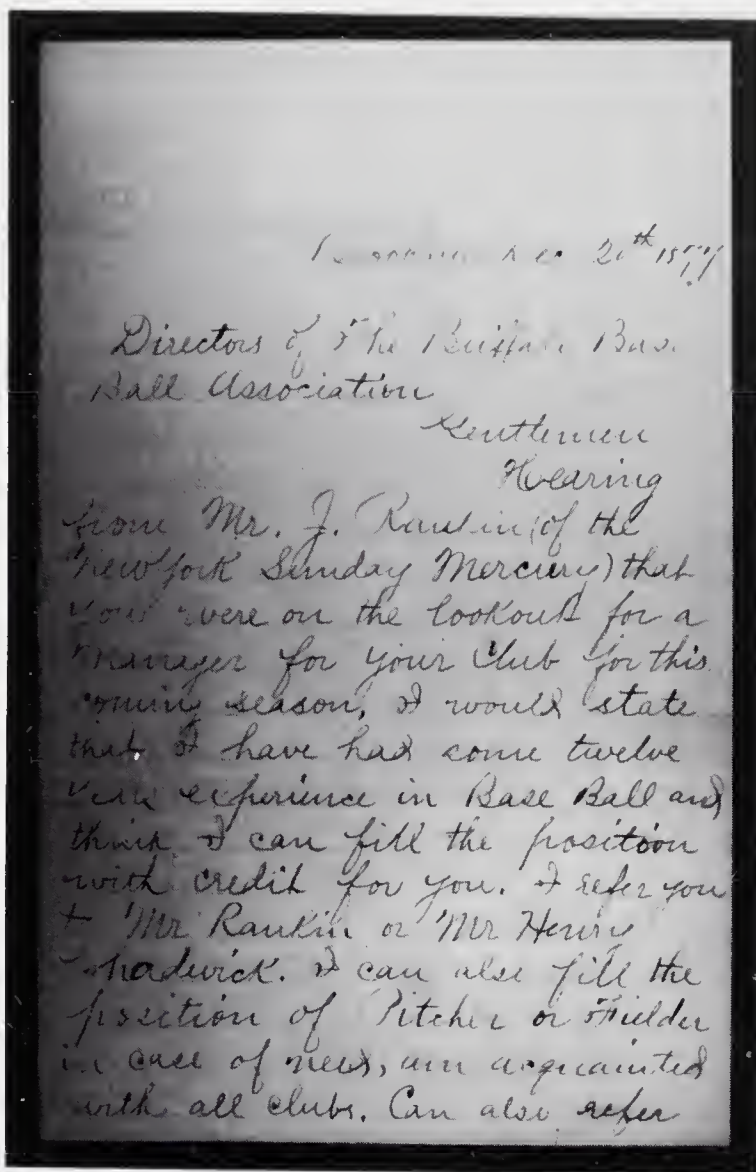 20th 1877
Directors of The Buffalo Base
Ball Association
Gentlemen
Hearing
from Mr. J. Rankin (of the
New York Sunday Mercury) that
you were on the lookout for a
Manager for your Club for this
coming season, I would state
that I have had some twelve
years experience in Base Ball and
think I can fill the position
with credit for you. I refer you
to Mr Rankin or Mr Henry
Chadwick. I can also fill the
position of Pitcher or Fielder
in case of need, am acquainted
with all clubs. Can also refer